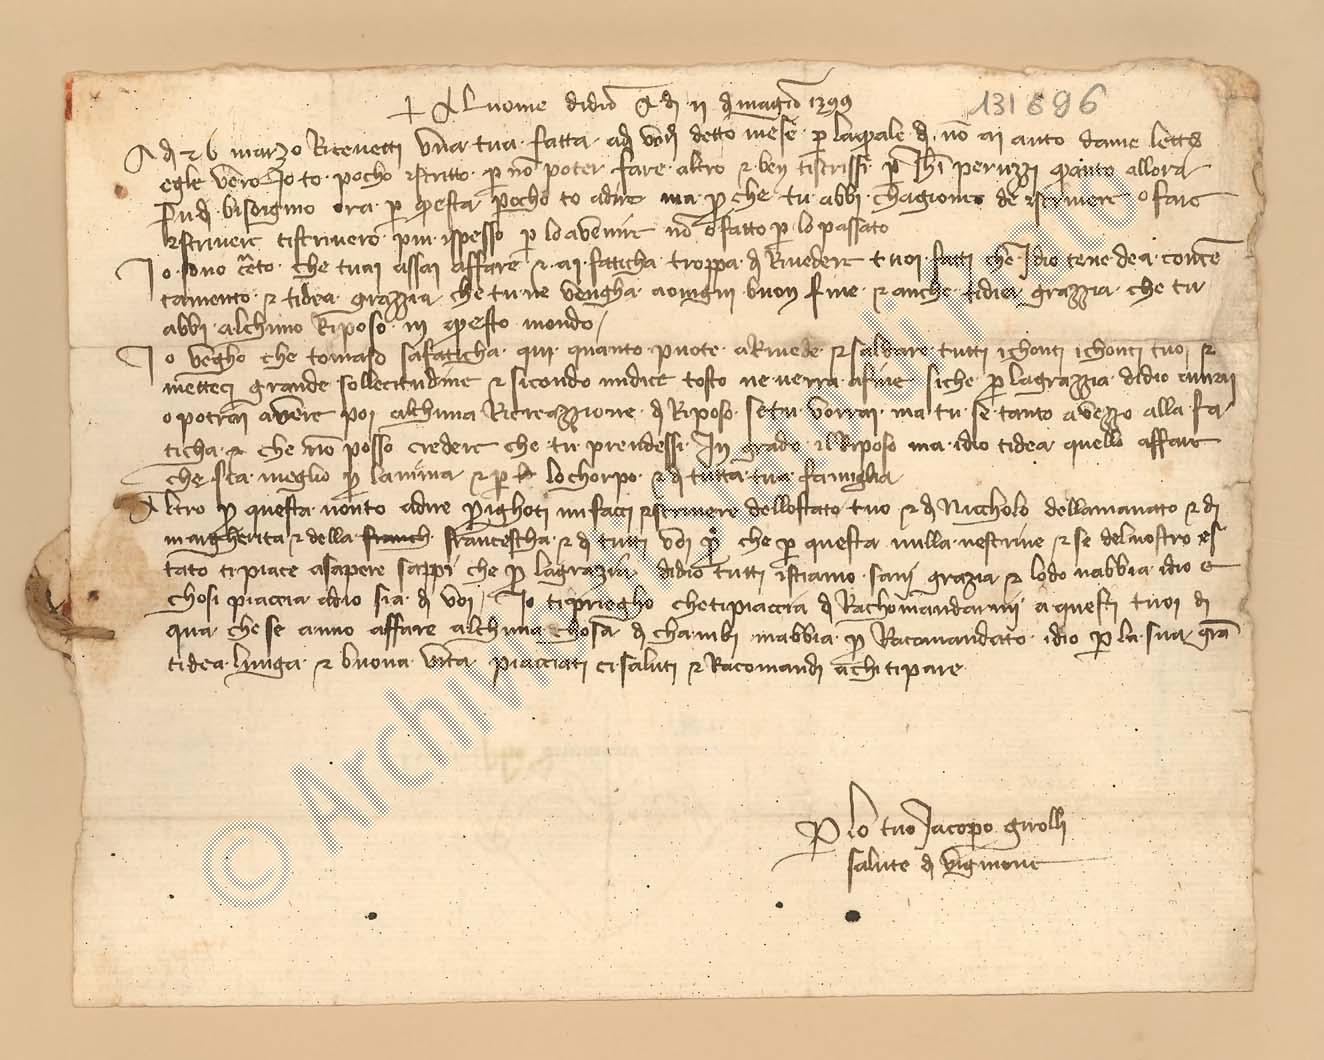 131696
+ Al nome didio A di 11 di magio 1399
A di 26 marzo Ricevetti una tua fatta adi detto mese per laquale di non ai auto dame lettera
egle vero Io to pocho iscritto per no poter fare altro et ben tiscrissi per peruzzi quanto allora
fu di bisogno ora per questa pocho to adire ma per che tu abbi chagione de iscrivere o fare
iscrivere tiscrivero piu ispesso per lo avenire no o fatto per lo passato
Io sono certo che tuai assai affare et ai faticha troppa di Rivedere tuoi fatti che Idio tene dea conten
tamento et tidea grazzia che tu ne vengha aongni buon fine et anche tidia grazzia che tu
abbi alchuno Riposo in questo mondo
Io vegho che tomaso safaticha qui quanto puote a Rivede et saldare tutti ichonti ichonti tuoi et
metteci grande sollecitudine et sicondo midice tosto ne verra afine siche per lagrazzia didio
o potrai avere poi alchuna Ricreazzione di Riposo setu vorrai ma tu se tanto avezzo alla fa
ticha et che no posso credere che tu prendessi In grado il Riposo ma idio tidea quello affare
che sia meglio per lanima et per lo chorpo et di tutta tua famiglia
Altro per questa nonto adire Prighoti mi facci iscrivere dellostato tuo et di Niccholo dellamanato et di
margherita et della franch francescha et di tutti voi per che per questa nulla nescrive et se delnostro es
tato tipiace asapere sappi che per lagrazia didio tutti istiamo sani grazia et lodo nabbia idio e
chosi piaccia adio sia di voi Io tiprieghe chetipiaccia di Rachomandarmi a questi tuoi di
qua che se anno affare alchuna chosa di chambi mabbia per Racomandato idio per la sua gra
tidea lunga et buona vita piacciati ci saluti et Racomandi achi tipare
Per lo tuo Jacopo girolli
salute di vignone
© Archivio di Stato di Prato